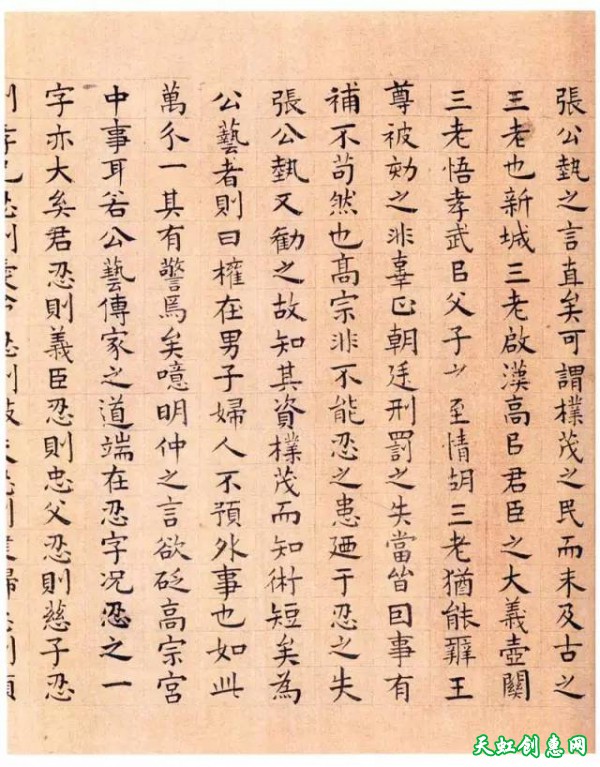 張公埶之言直矣可謂樸茂之民而未及古之
三老也新城三老啟漢高㠯君臣之大義壺關
三老悟孝武㠯父子之至情胡三老猶能辭王
尊被劾之非辜正朝廷刑罰之失當皆因事有
補不苟然也高宗非不能忍之患迺于忍之失
張公埶又勸之故知其資樸茂而知術短矣為
公藝者則曰權在男子婦人不預外事也如此
萬分一其有警焉矣噫明仲之言欲砭高宗宮
中事耳若公藝傳家之道端在忍字況忍之一
字亦大矣君忍則義臣忍則忠父忍則慈子忍
天虹创惠网